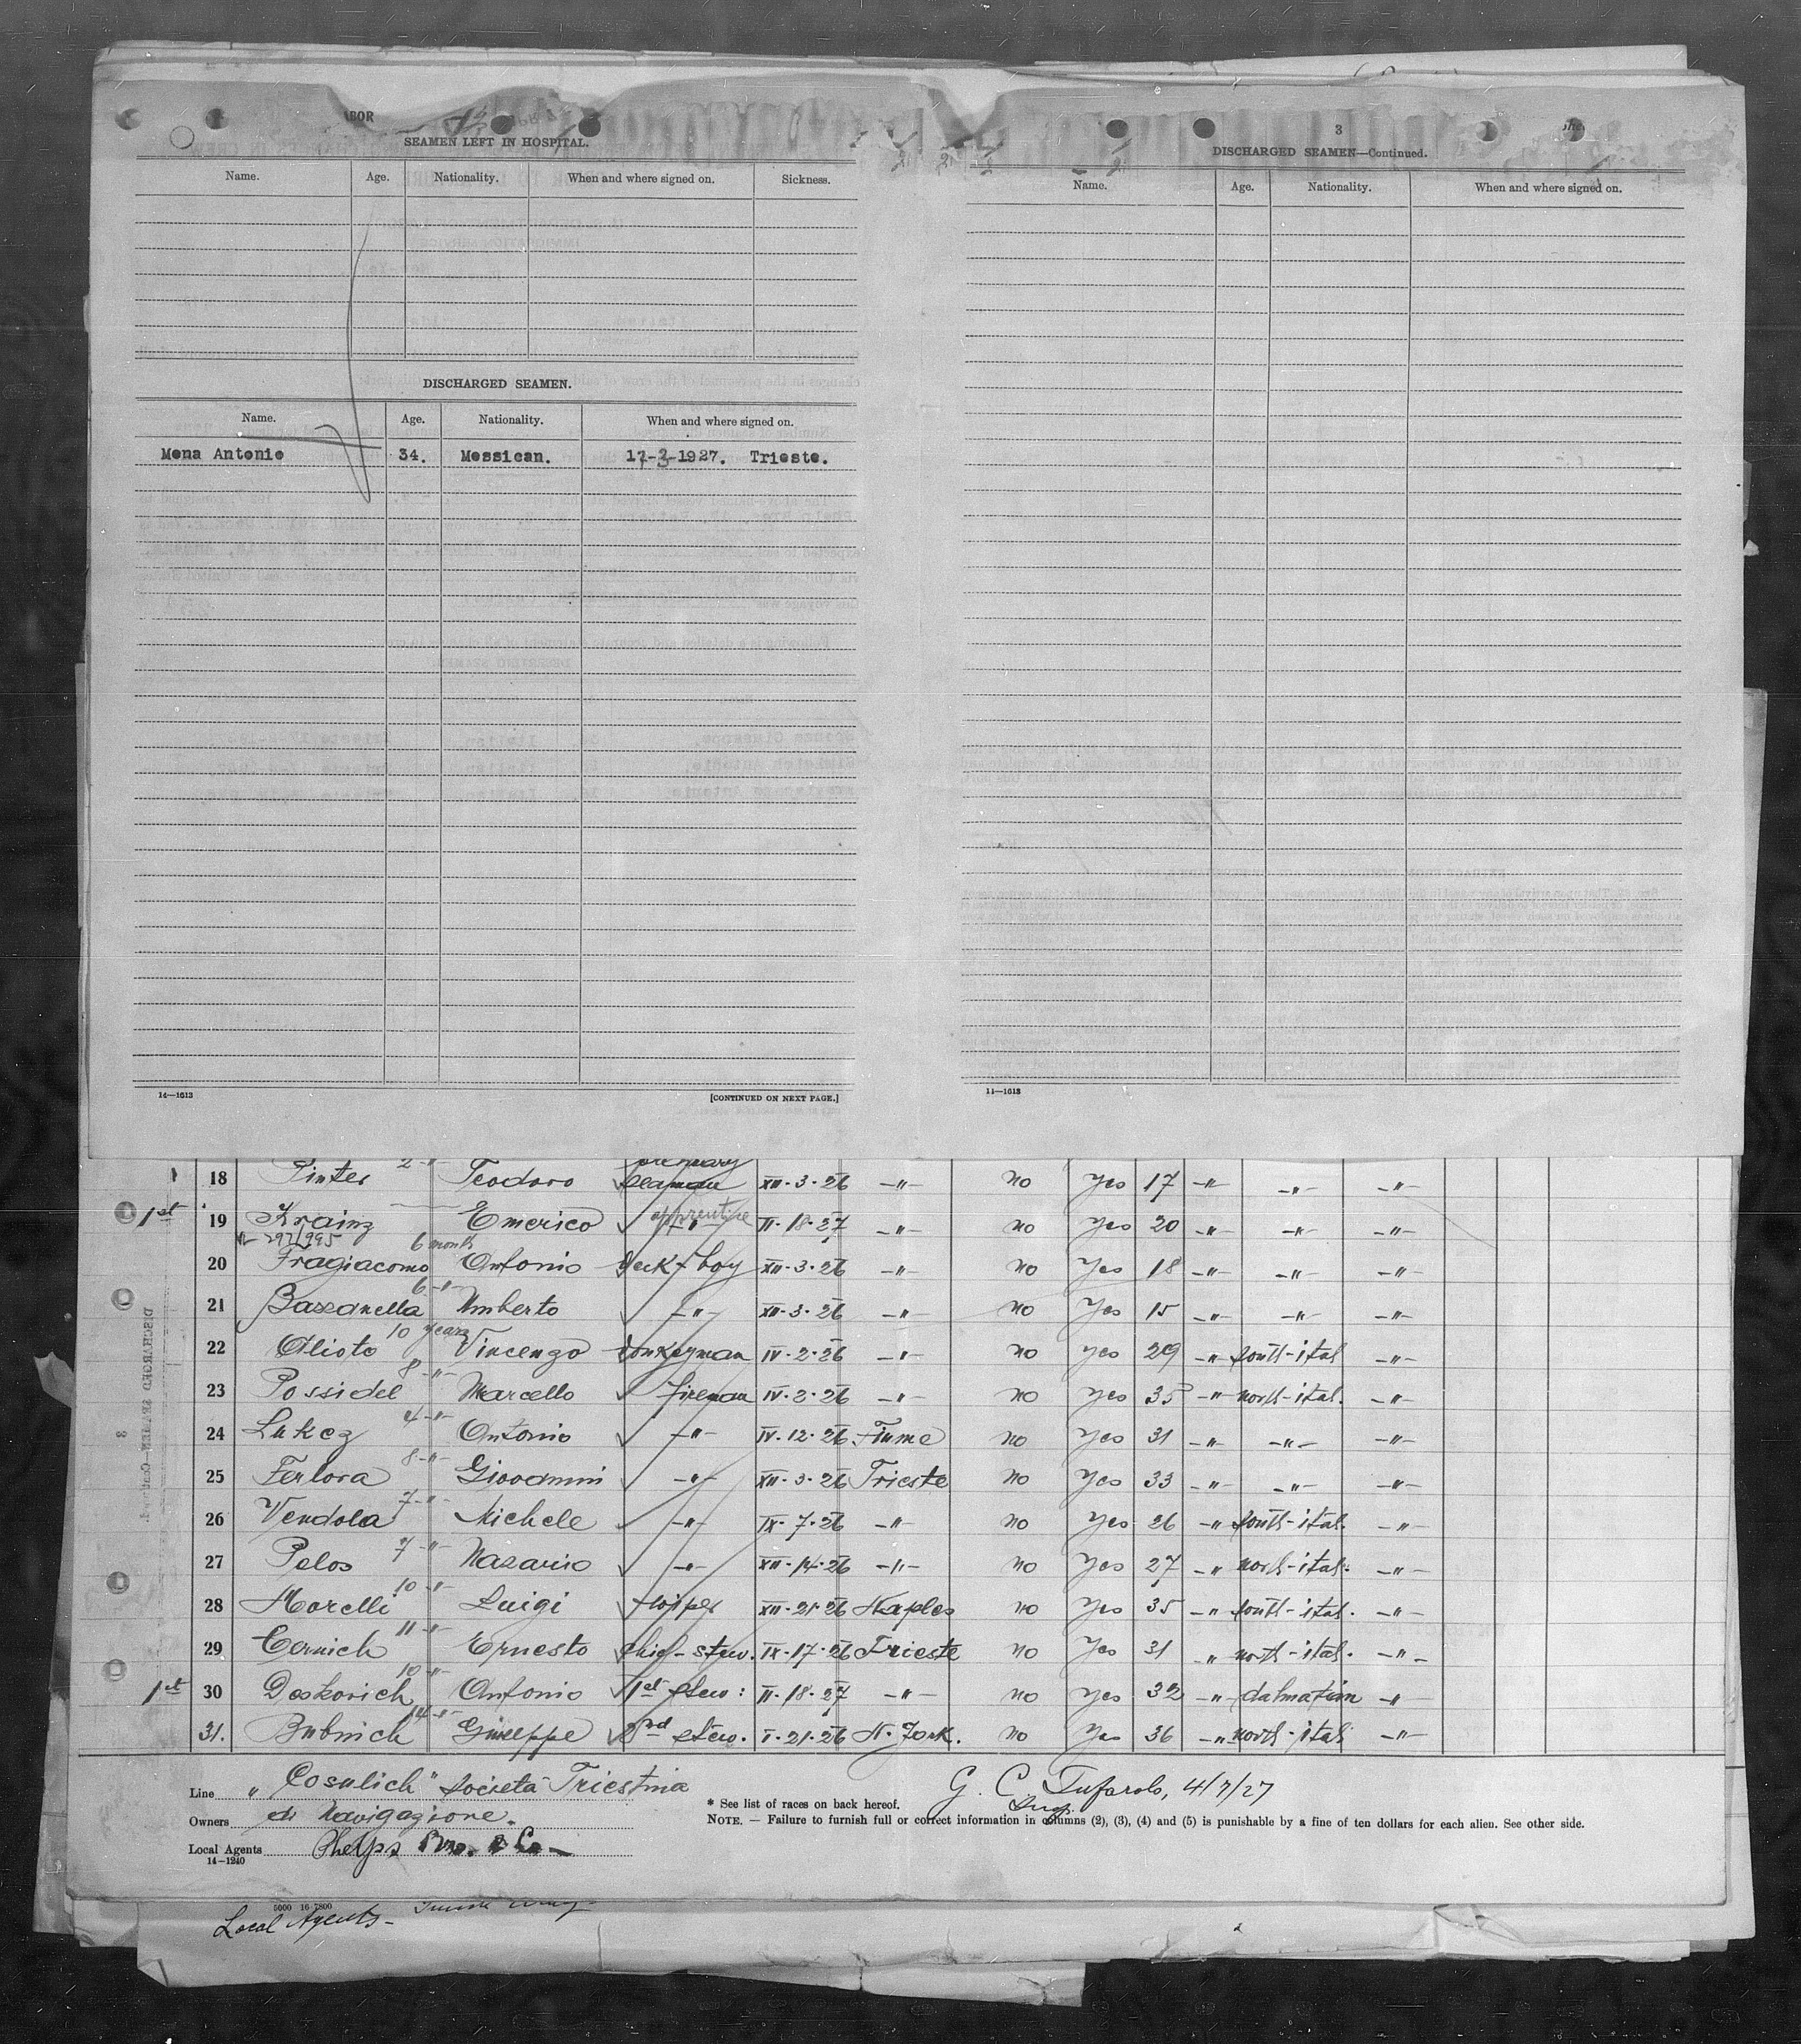 ABOR
SEAMEN LEFT IN HOSPITAL.
Name. Age. Nationality. When and where signed on. Sickness.
DISCHARGED SEAMEN.
Name. Age. Nationality. When and where signed on.
Mena Antonio 34. Messican. 17-3-1927. Trieste.
14—1613 [CONTINUED ON NEXT PAGE.]
3
DISCHARGED SEAMEN—Continued.
Name. Age. Nationality. When and where signed on.
14—1613
18 Pinter 2 -"- Teodoro seaman XII·3·26 -"- no yes 17 -"- -"- -"-
1st 19 Krainz Emerico apprentice II·18·27 -"- no yes 20 -"- -"- -"-
297/995 6 month
20 Fragiacomo Antonio deck-boy XII·3·26 -"- no yes 18 -"- -"- -"-
21 Bazzanella 6 -"- Umberto -"- XII·3·26 -"- no yes 15 -"- -"- -"-
22 Alioto 10 years Vincenzo donkeyman IV·2·26 -"- no yes 29 -"- south-ital -"-
23 Possidel 8 -"- Marcello fireman IV·2·26 -"- no yes 35 -"- north-ital. -"-
24 Lukez 4 -"- Antonio -"- IV·12·26 Fiume no yes 31 -"- -"- -"-
25 Ferlora 8 -"- Giovanni -"- XII·3·26 Trieste no yes 33 -"- -"- -"-
26 Vendola 7 -"- Michele -"- IX·7·26 -"- no yes 26 -"- south-ital. -"-
27 Pelos 7 -"- Nazario -"- XII·14·26 -"- no yes 27 -"- north-ital. -"-
28 Morelli 10 -"- Luigi XII·21·26 Naples no yes 35 -"- south-ital. -"-
29 Cernich 11 -"- Ernesto chief-stew. IX·17·26 Trieste no yes 31 -"- north-ital. -"-
1st 30 Deskovich 10 -"- Antonio 1st stew: II·18·27 -"- no yes 32 -"- dalmatian -"-
31. Bubnich 14 -"- Giuseppe 2nd stew. I·21·26 N. York. no yes 36 -"- north-ital -"-
Line „Cosulich" Società Triestina
Owners di Navigazione.
Local Agents Phelps Bro. & Co—
14—1240
G. C. Tufarolo, 4/7/27
Insp.
* See list of races on back hereof.
NOTE. — Failure to furnish full or correct information in columns (2), (3), (4) and (5) is punishable by a fine of ten dollars for each alien. See other side.
Local Agents-